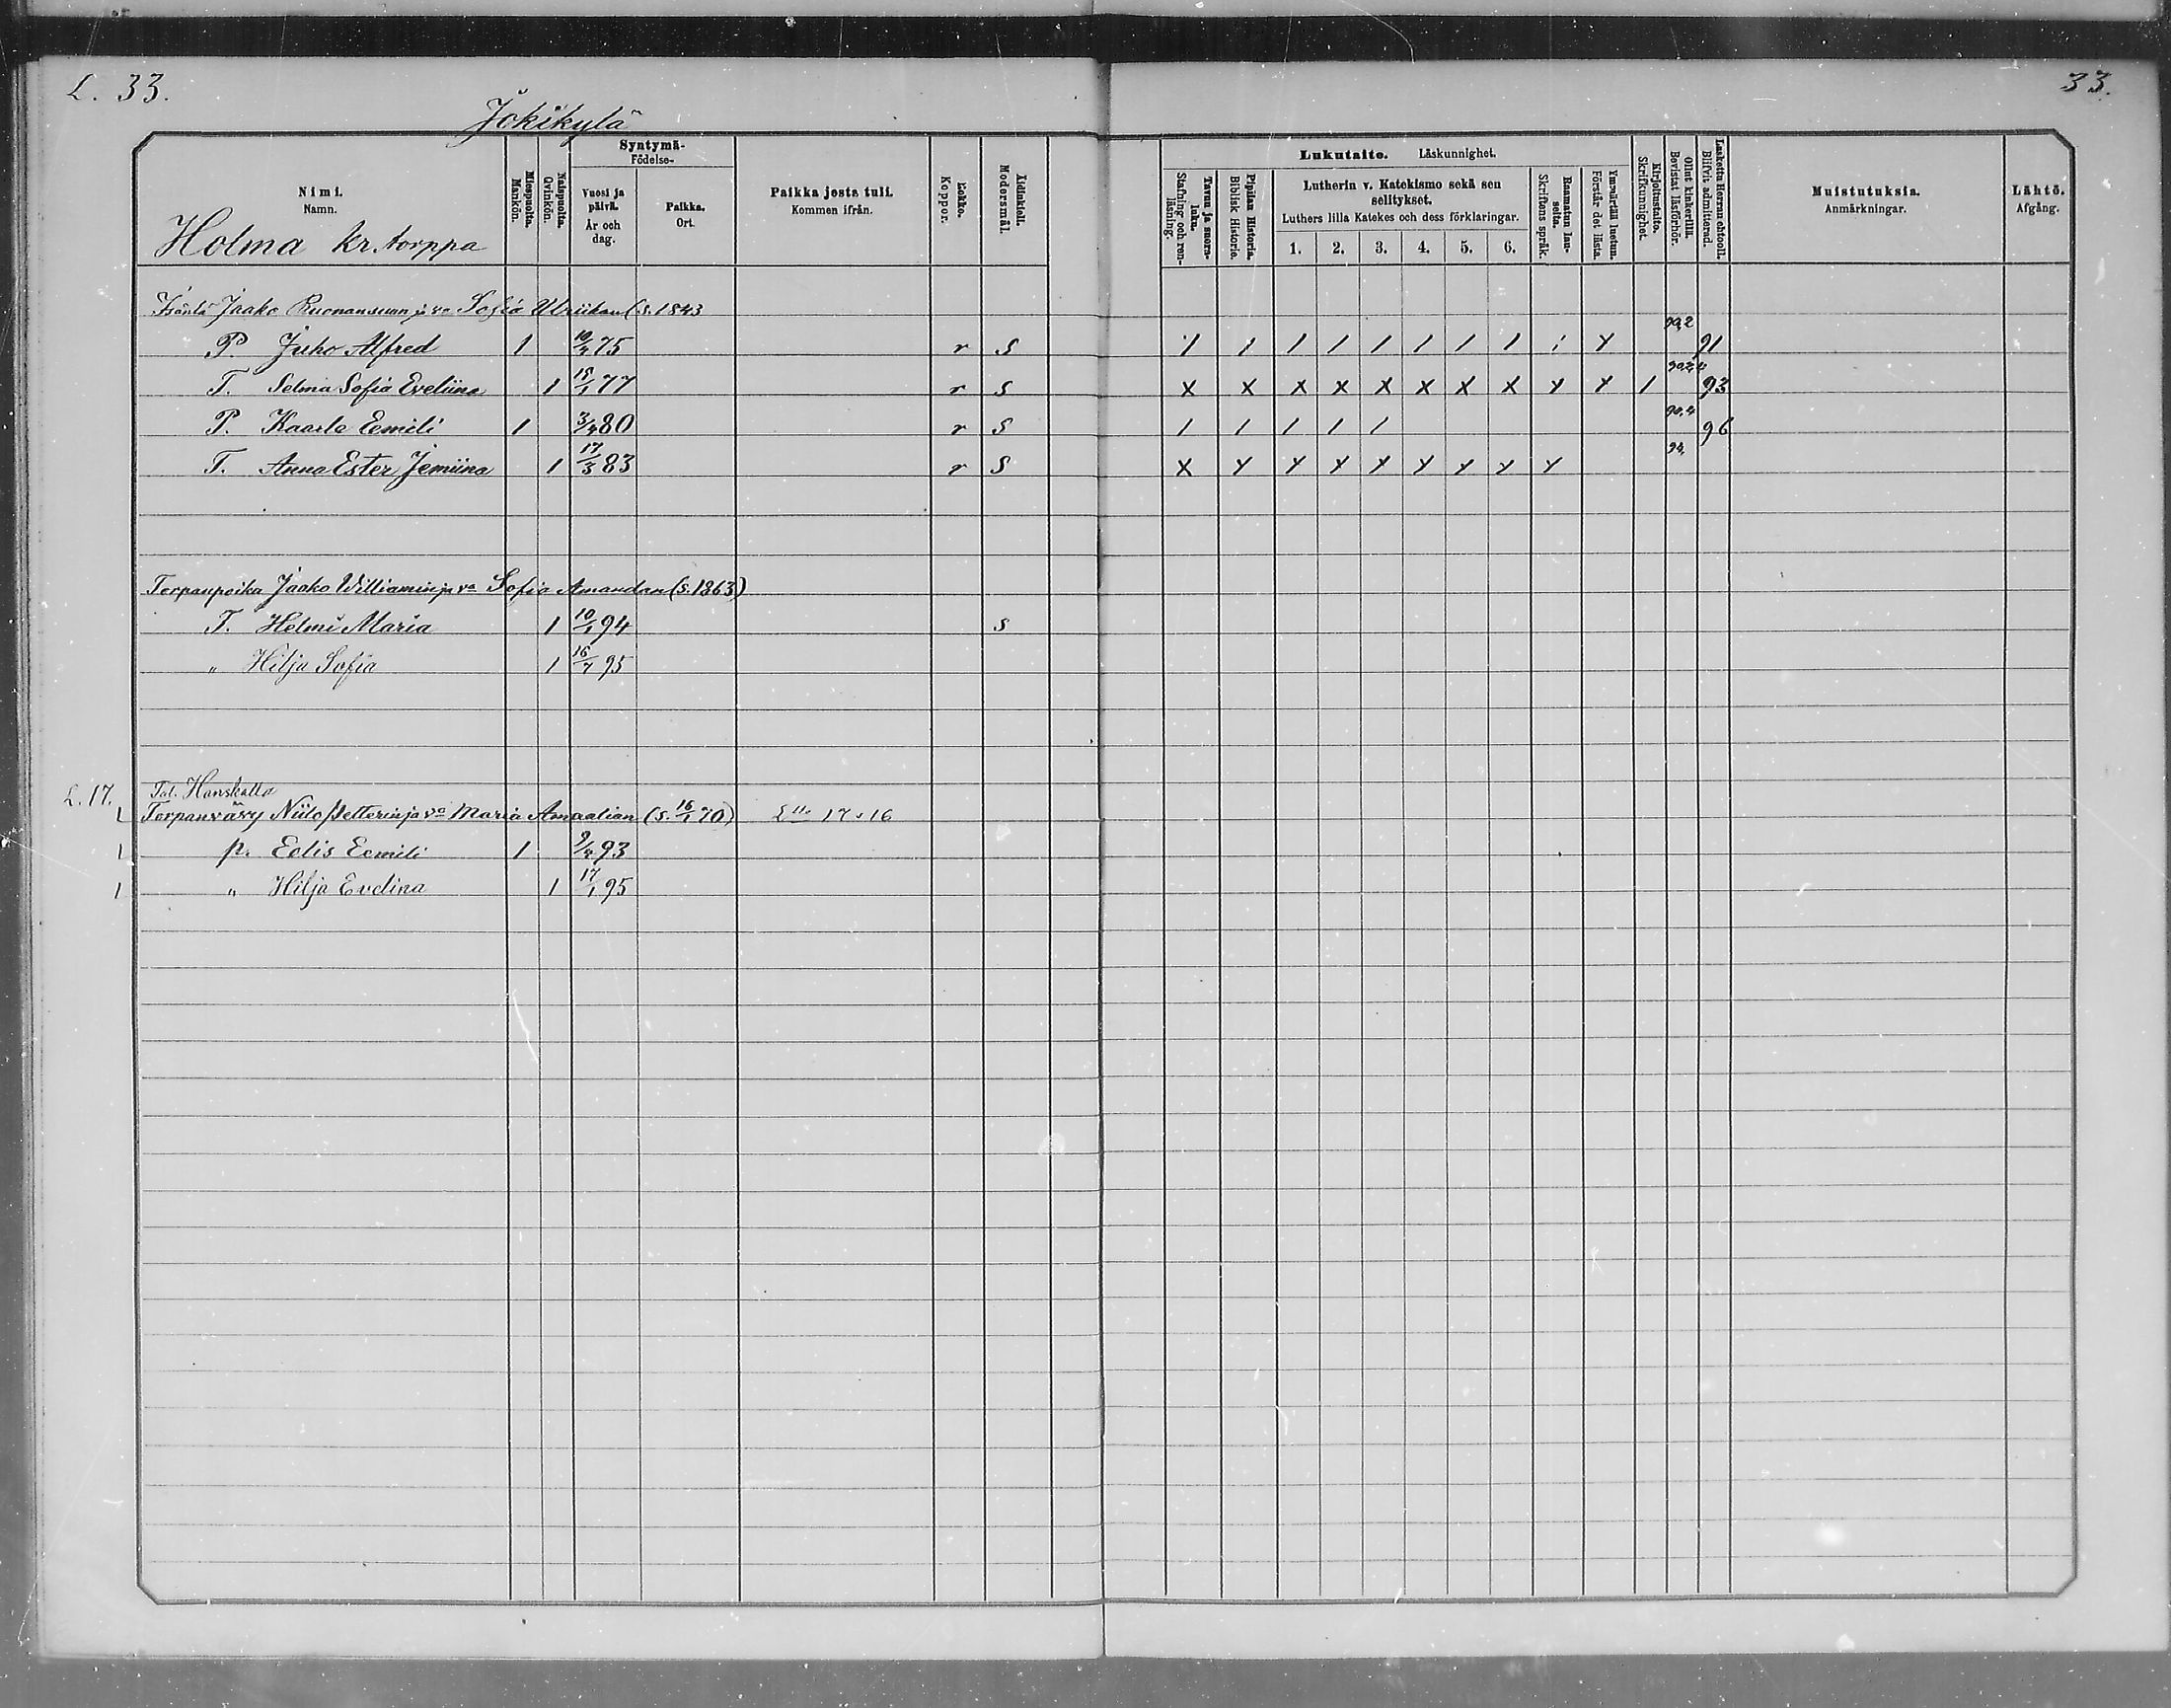 L. 33.
33.
Jokikylä
Nimi.
Namn.
Miespuolta.
Mankön.
Naispuolta.
Qvinkön.
Syntymä-
Födelse-
Vuosi ja
päivä.
År och
dag.
Paikka.
Ort.
Paikka josta tuli.
Kommen ifrån.
Rokko.
Koppor.
Äidinkieli.
Modersmål.
Lukutaito. Läskunnighet.
Tavuu ja suoraan-
luku.
Stafning och ren-
läsning.
Piplian Historia.
Biblisk Historie.
Lutherin v. Katekismo sekä sen
selitykset.
Luthers lilla Katekes och dess förklaringar.
1. 2. 3. 4. 5. 6.
Raamatun lau-
seita.
Skriftens språk.
Ymmärtää luetun.
Förstår det lästa.
Kirjoitustaito.
Skrifkunnighet.
Ollut kinkerillä.
Bevistat läsförhör.
Laskettu Herran ehtooll.
Blifvit admitterad.
Muistutuksia.
Anmärkningar.
Lähtö.
Afgång.
Holma kr. torppa
Jaako Ruonansuun ja vn Sofia Ulriikan (s. 1843
P. Juho Alfred 1 10/4 75 r S 1 1 1 1 1 1 1 1 1 Y 90,2 91
T. Selma Sofia Eveliina 1 18/1 77 r S X X X X X X X X Y Y 1 93
P. Kaarle Eemili 1 3/4 80 r S 1 1 1 1 1 90,4 96
T. Anna Ester Jemiina 1 17/3 83 r S X Y Y Y Y Y Y Y Y 94,
Torpanpoika Jaako Williamin ja vn Sofia Amandan (s. 1863)
T. Helmi Maria 1 10/1 94 S
" Hilja Sofia 1 16/7 95
L. 17. Tal. Hanskalla
1 Torpanvävy Niilo Petterin ja vn Maria Amaalian (s. 16/1 70) 17 s 16
1 p. Edis Eemili 1 9/4 93
1 " Hilja Evelina 1 17/1 95